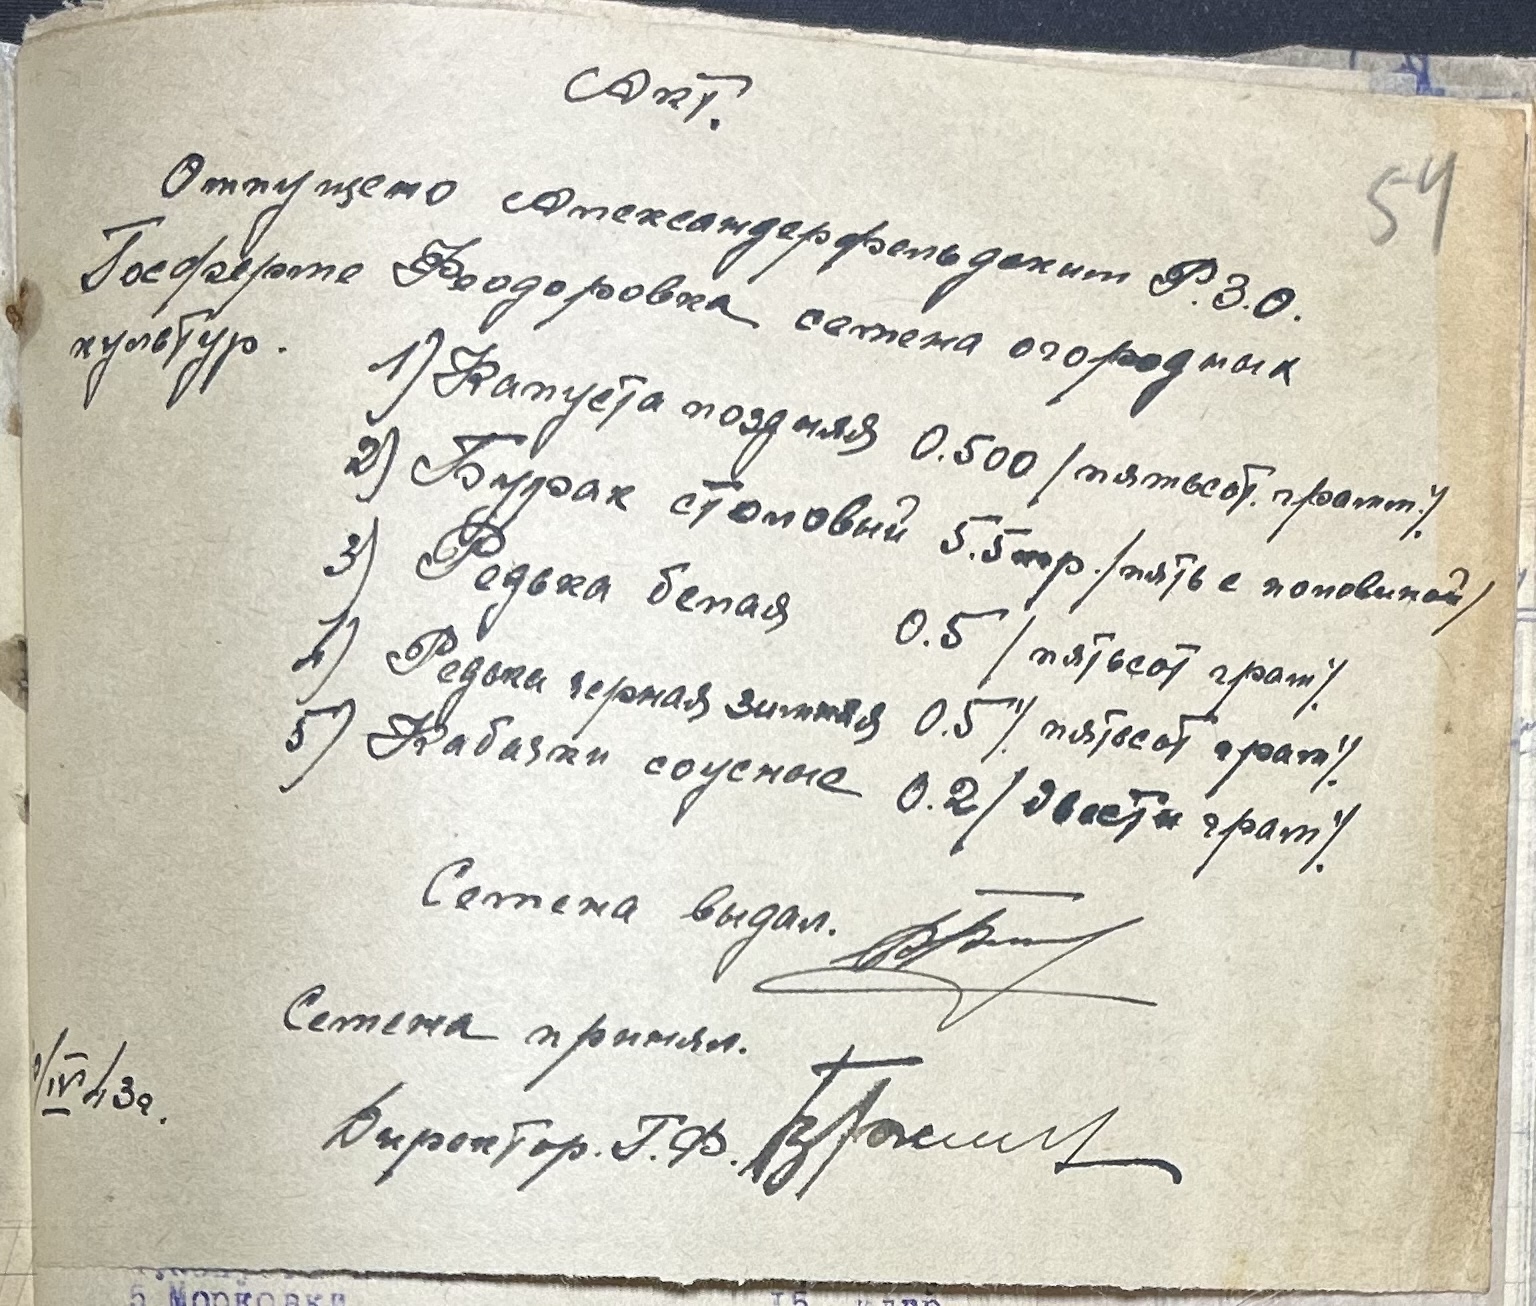 Акт.
54
Отпущено Александерфельдским Р.З.О.
Госферме Феодоровка семена огородных
культур.
1) Капуста поздняя 0.500 /пятьсот. грамм./
2) Бурак столовый 5.5 гр. /пять с половиной/
3) Редька белая 0.5 /пятьсот грам./
4) Редька черная зимняя 0.5 /. пятьсот грам./
5) Кабачки соусные 0.2 / двести грам./
Семена выдал.
Семена принял.
/IV 43г.
Директор. Г.Ф.
5 Морковка